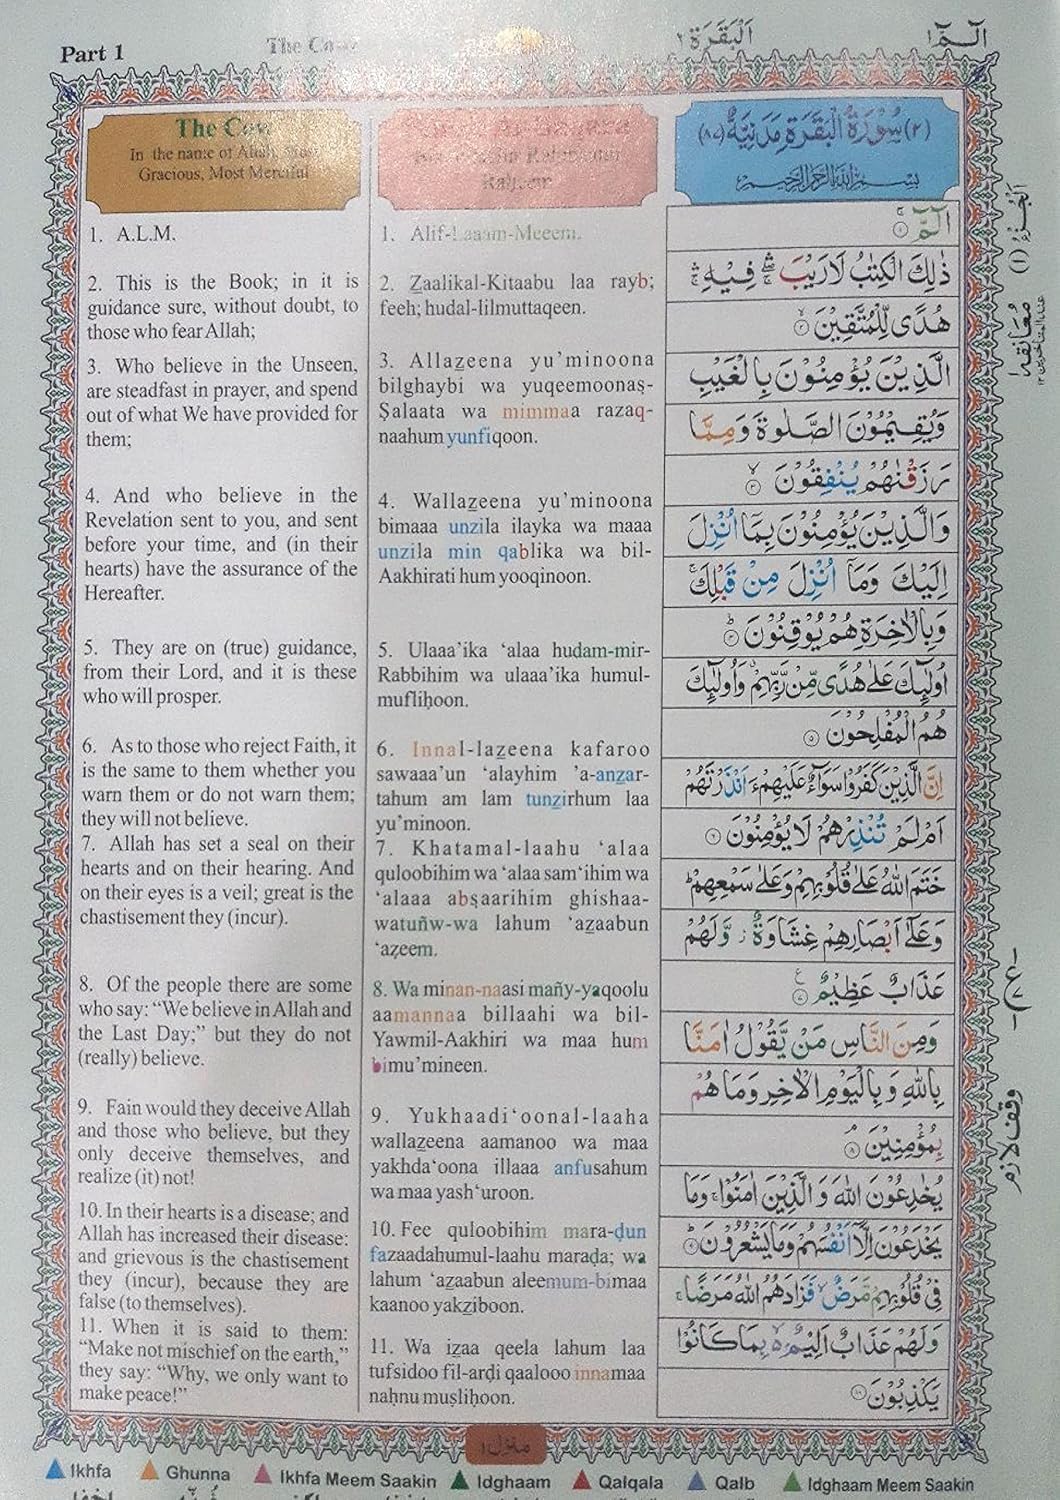 Part 1
The Cow
اَلْبَقَرَة ٢
الٓـمّٓ ١
The Cow
In the name of Allah, Most
Gracious, Most Merciful
1. A.L.M.
2. This is the Book; in it is
guidance sure, without doubt, to
those who fear Allah;
3. Who believe in the Unseen,
are steadfast in prayer, and spend
out of what We have provided for
them;
4. And who believe in the
Revelation sent to you, and sent
before your time, and (in their
hearts) have the assurance of the
Hereafter.
5. They are on (true) guidance,
from their Lord, and it is these
who will prosper.
6. As to those who reject Faith, it
is the same to them whether you
warn them or do not warn them;
they will not believe.
7. Allah has set a seal on their
hearts and on their hearing. And
on their eyes is a veil; great is the
chastisement they (incur).
8. Of the people there are some
who say: “We believe in Allah and
the Last Day;” but they do not
(really) believe.
9. Fain would they deceive Allah
and those who believe, but they
only deceive themselves, and
realize (it) not!
10. In their hearts is a disease; and
Allah has increased their disease:
and grievous is the chastisement
they (incur), because they are
false (to themselves).
11. When it is said to them:
“Make not mischief on the earth,”
they say: “Why, we only want to
make peace!”
Raheem
1. Alif-Laaam-Meeem.
2. Zaalikal-Kitaabu laa rayb;
feeh; hudal-lilmuttaqeen.
3. Allazeena yu’minoona
bilghaybi wa yuqeemoonaṣ-
Ṣalaata wa mimmaa razaq-
naahum yunfiqoon.
4. Wallazeena yu’minoona
bimaaa unzila ilayka wa maaa
unzila min qablika wa bil-
Aakhirati hum yooqinoon.
5. Ulaaa’ika ‘alaa hudam-mir-
Rabbihim wa ulaaa’ika humul-
mufliḥoon.
6. Innal-lazeena kafaroo
sawaaa’un ‘alayhim ’a-anzar-
tahum am lam tunzirhum laa
yu’minoon.
7. Khatamal-laahu ‘alaa
quloobihim wa ‘alaa sam‘ihim wa
‘alaaa abṣaarihim ghishaa-
watuñw-wa lahum ‘azaabun
‘aẓeem.
8. Wa minan-naasi mañy-yaqoolu
aamannaa billaahi wa bil-
Yawmil-Aakhiri wa maa hum
bimu’mineen.
9. Yukhaadi‘oonal-laaha
wallazeena aamanoo wa maa
yakhda‘oona illaaa anfusahum
wa maa yash‘uroon.
10. Fee quloobihim mara-ḍun
fazaadahumul-laahu maraḍa; wa
lahum ‘azaabun aleemum-bimaa
kaanoo yakziboon.
11. Wa izaa qeela lahum laa
tufsidoo fil-arḍi qaalooo innamaa
naḥnu muṣliḥoon.
(٢) سُوْرَةُ الْبَقَرَةِ مَدَنِيَّةٌ (٨٧)
بِسْمِ اللّٰهِ الرَّحْمٰنِ الرَّحِيْمِ
الٓمّٓ ۚ ١
ذٰلِكَ الْكِتٰبُ لَا رَيْبَ ۛۖ فِيْهِ ۛۚ
هُدًى لِّلْمُتَّقِيْنَ ۙ ٢
الَّذِيْنَ يُؤْمِنُوْنَ بِالْغَيْبِ
وَيُقِيْمُوْنَ الصَّلٰوةَ وَمِمَّا
رَزَقْنٰهُمْ يُنْفِقُوْنَ ۙ ٣
وَالَّذِيْنَ يُؤْمِنُوْنَ بِمَآ اُنْزِلَ
اِلَيْكَ وَمَآ اُنْزِلَ مِنْ قَبْلِكَ ۚ
وَبِالْاٰخِرَةِ هُمْ يُوْقِنُوْنَ ؕ ٤
اُولٰٓئِكَ عَلٰى هُدًى مِّنْ رَّبِّهِمْ ۗ وَاُولٰٓئِكَ
هُمُ الْمُفْلِحُوْنَ ٥
اِنَّ الَّذِيْنَ كَفَرُوْا سَوَآءٌ عَلَيْهِمْ ءَاَنْذَرْتَهُمْ
اَمْ لَمْ تُنْذِرْهُمْ لَا يُؤْمِنُوْنَ ٦
خَتَمَ اللّٰهُ عَلٰى قُلُوْبِهِمْ وَعَلٰى سَمْعِهِمْ ؕ
وَعَلٰٓى اَبْصَارِهِمْ غِشَاوَةٌ ؗ وَّلَهُمْ
عَذَابٌ عَظِيْمٌ ٧
وَمِنَ النَّاسِ مَنْ يَّقُوْلُ اٰمَنَّا
بِاللّٰهِ وَبِالْيَوْمِ الْاٰخِرِ وَمَا هُمْ
بِمُؤْمِنِيْنَ ۘ ٨
يُخٰدِعُوْنَ اللّٰهَ وَالَّذِيْنَ اٰمَنُوْا ۚ وَمَا
يَخْدَعُوْنَ اِلَّآ اَنْفُسَهُمْ وَمَا يَشْعُرُوْنَ ؕ ٩
فِيْ قُلُوْبِهِمْ مَّرَضٌ ۙ فَزَادَهُمُ اللّٰهُ مَرَضًا ۚ
وَلَهُمْ عَذَابٌ اَلِيْمٌ ۢ بِمَا كَانُوْا
يَكْذِبُوْنَ ١٠
اَلْجُزْءُ (١)
مُعَانَقَه ١
ع
وقف لازم
منزل ١
Ikhfa
Ghunna
Ikhfa Meem Saakin
Idghaam
Qalqala
Qalb
Idghaam Meem Saakin